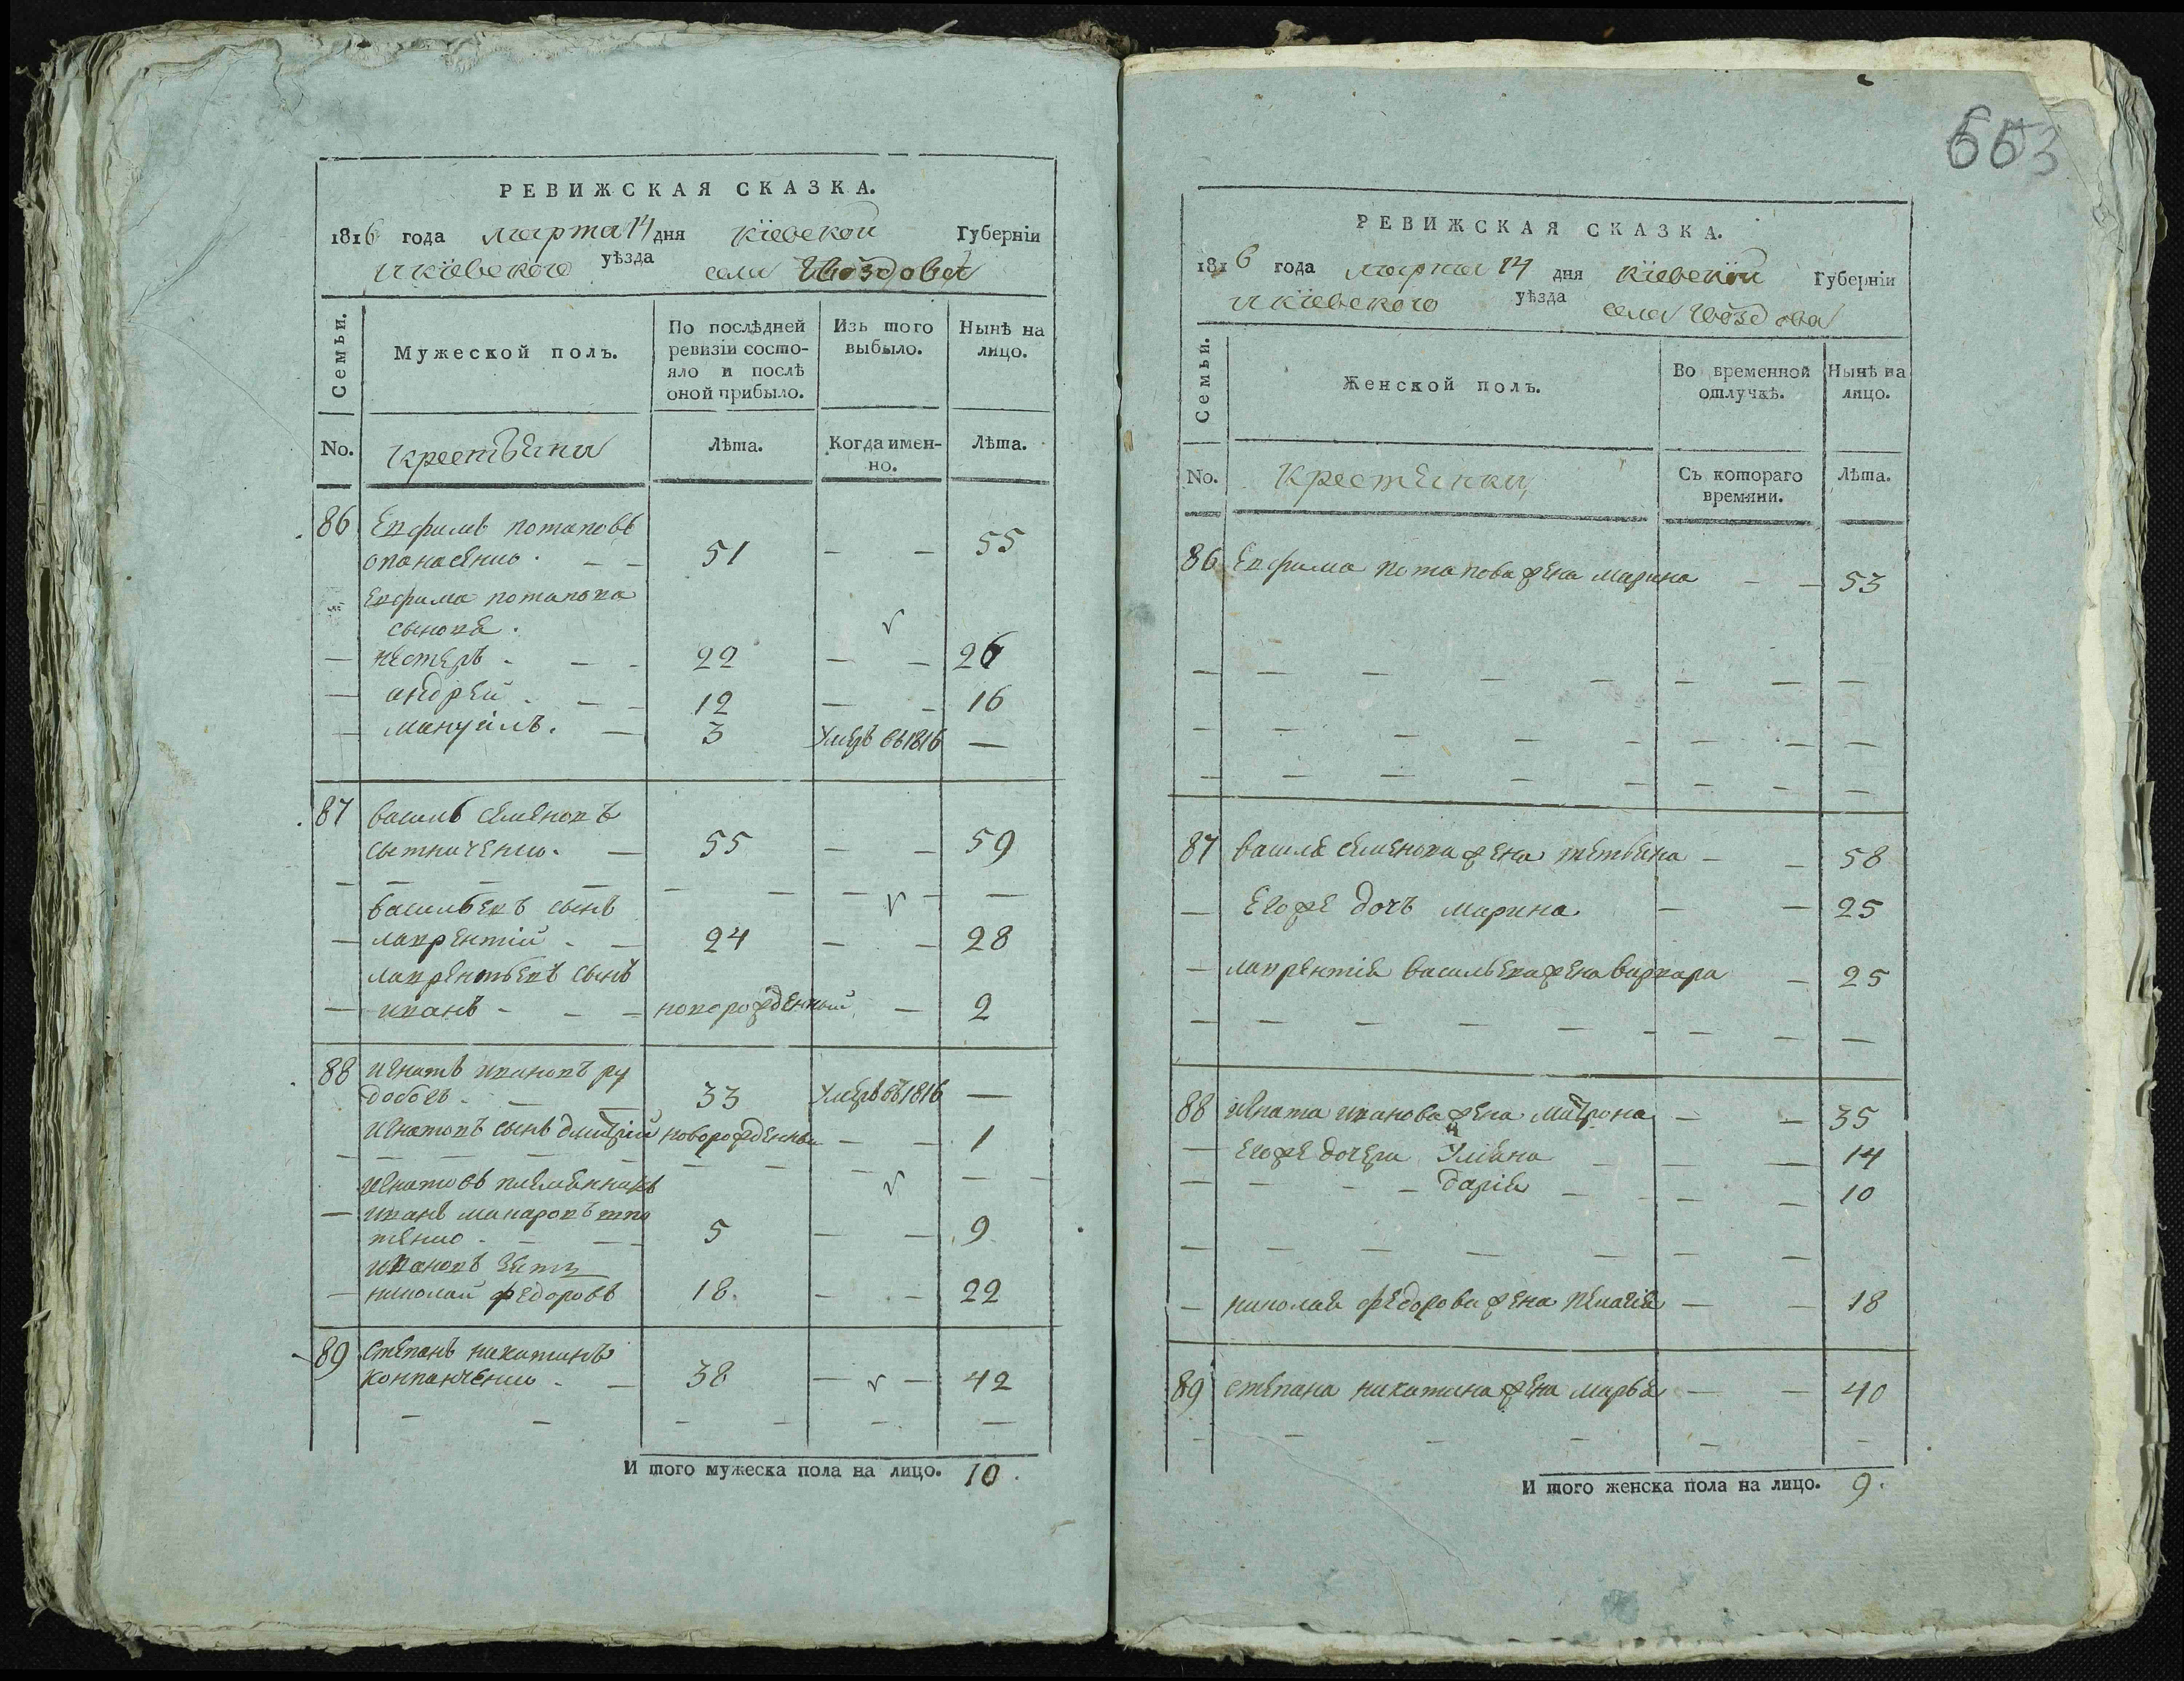 РЕВИЖСКАЯ СКАЗКА.
1816 года марта 14 дня кіевской Губерніи
и кіевского уѣзда села Гвоздова
Семьи. Мужеской полъ. По послѣдней ревизіи состояло и послѣ оной прибыло. Изъ того выбыло. Нынѣ на лицо.
No. крестьяни Лѣта. Когда именно. Лѣта.
86 Евфимъ потаповъ
опанасенко 51 — — 55
Евфима потапова
сыновя
— нестеръ 22 — — 26
— андрей 12 — — 16
— мануилъ 3 Умеръ въ 1816 —
87 василь семеновъ
сытниченко 55 — — 59
васильевъ сынъ
— лаврентій 24 — — 28
лаврентьевъ сынъ
— иванъ новорожденный — 2
88 игнатъ ивановъ ру
33 Умеръ въ 1816 —
игнатовъ сынъ дмитрій новорожденны — — 1
игнатовъ племянникъ
— иванъ макаровъ
5 — — 9
ивановъ зять
— николай федоровъ 18 — — 22
89 степанъ никитинъ
конпанченко 38 — — 42
И того мужеска пола на лицо. 10.
653
РЕВИЖСКАЯ СКАЗКА.
1816 года марта 14 дня кіевской Губерніи
и кіевского уѣзда села Гвоздова
Семьи. Женской полъ. Во временной отлучкѣ. Нынѣ на лицо.
No. Крестянки Съ котораго времяни. Лѣта.
86 Евфима потапова жена марина — — 53
87 василя семенова жена тетьяна — — 58
— Егоже дочъ марина — — 25
— лаврентія васильева жена варвара — 25
88 игната иванова жена матрона — — 35
— Егоже дочери Уляна — — 14
— дарія — — 10
— николая федорова жена пелагія — — 18
89 степана никитина жена марья — — 40
И того женска пола на лицо. 9.